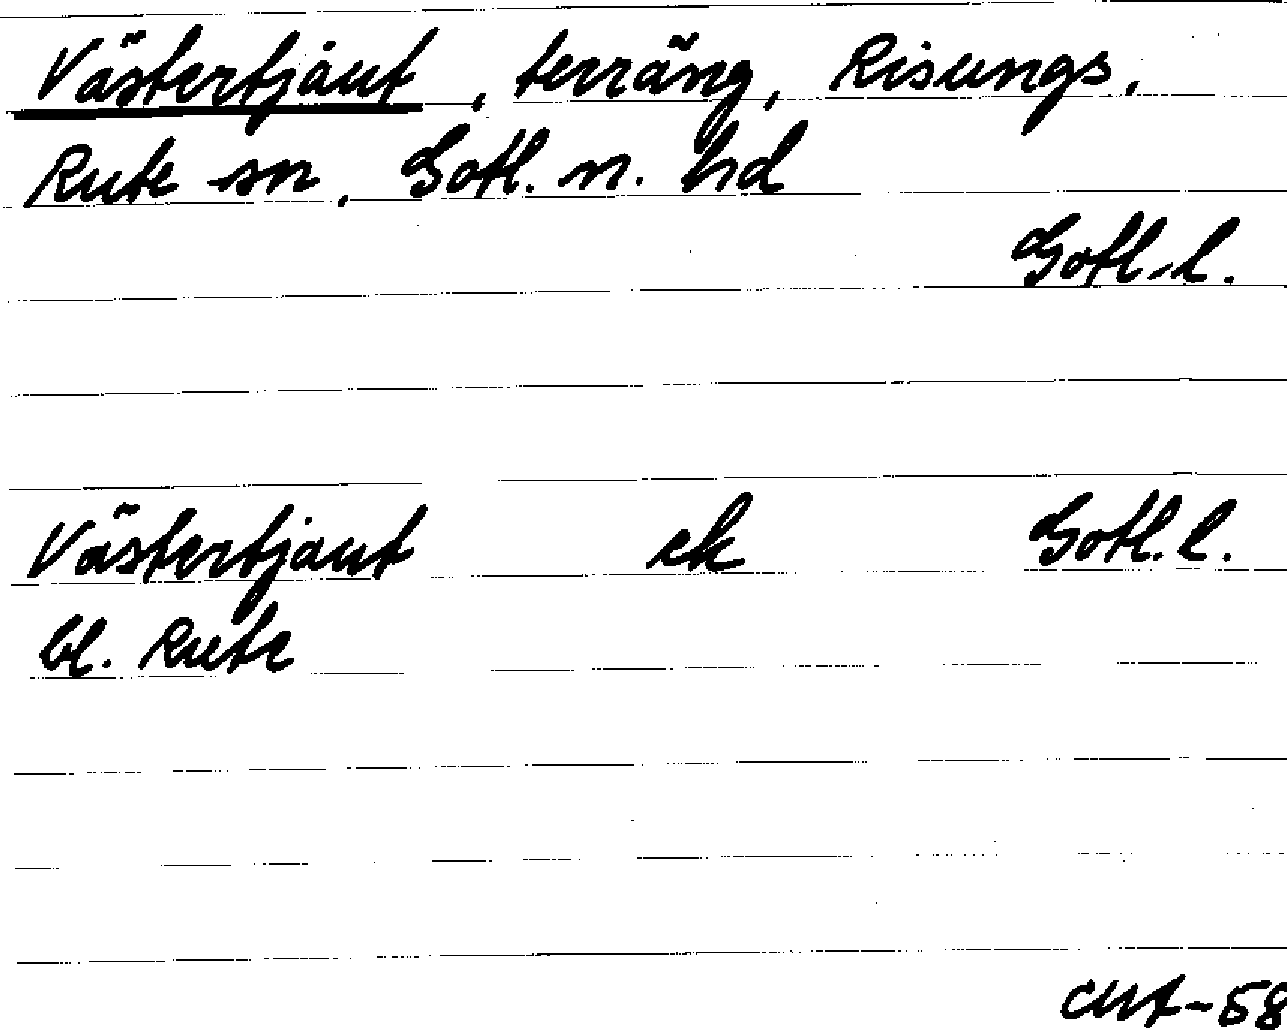 Västertjaut, terräng, Risungs,
Rute sn, Gotl. n. hd
Gotl. l.
Västertjaut ek Gotl. l.
bl. Rute